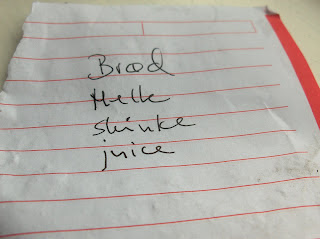 Brød
Melk
skinke
juice